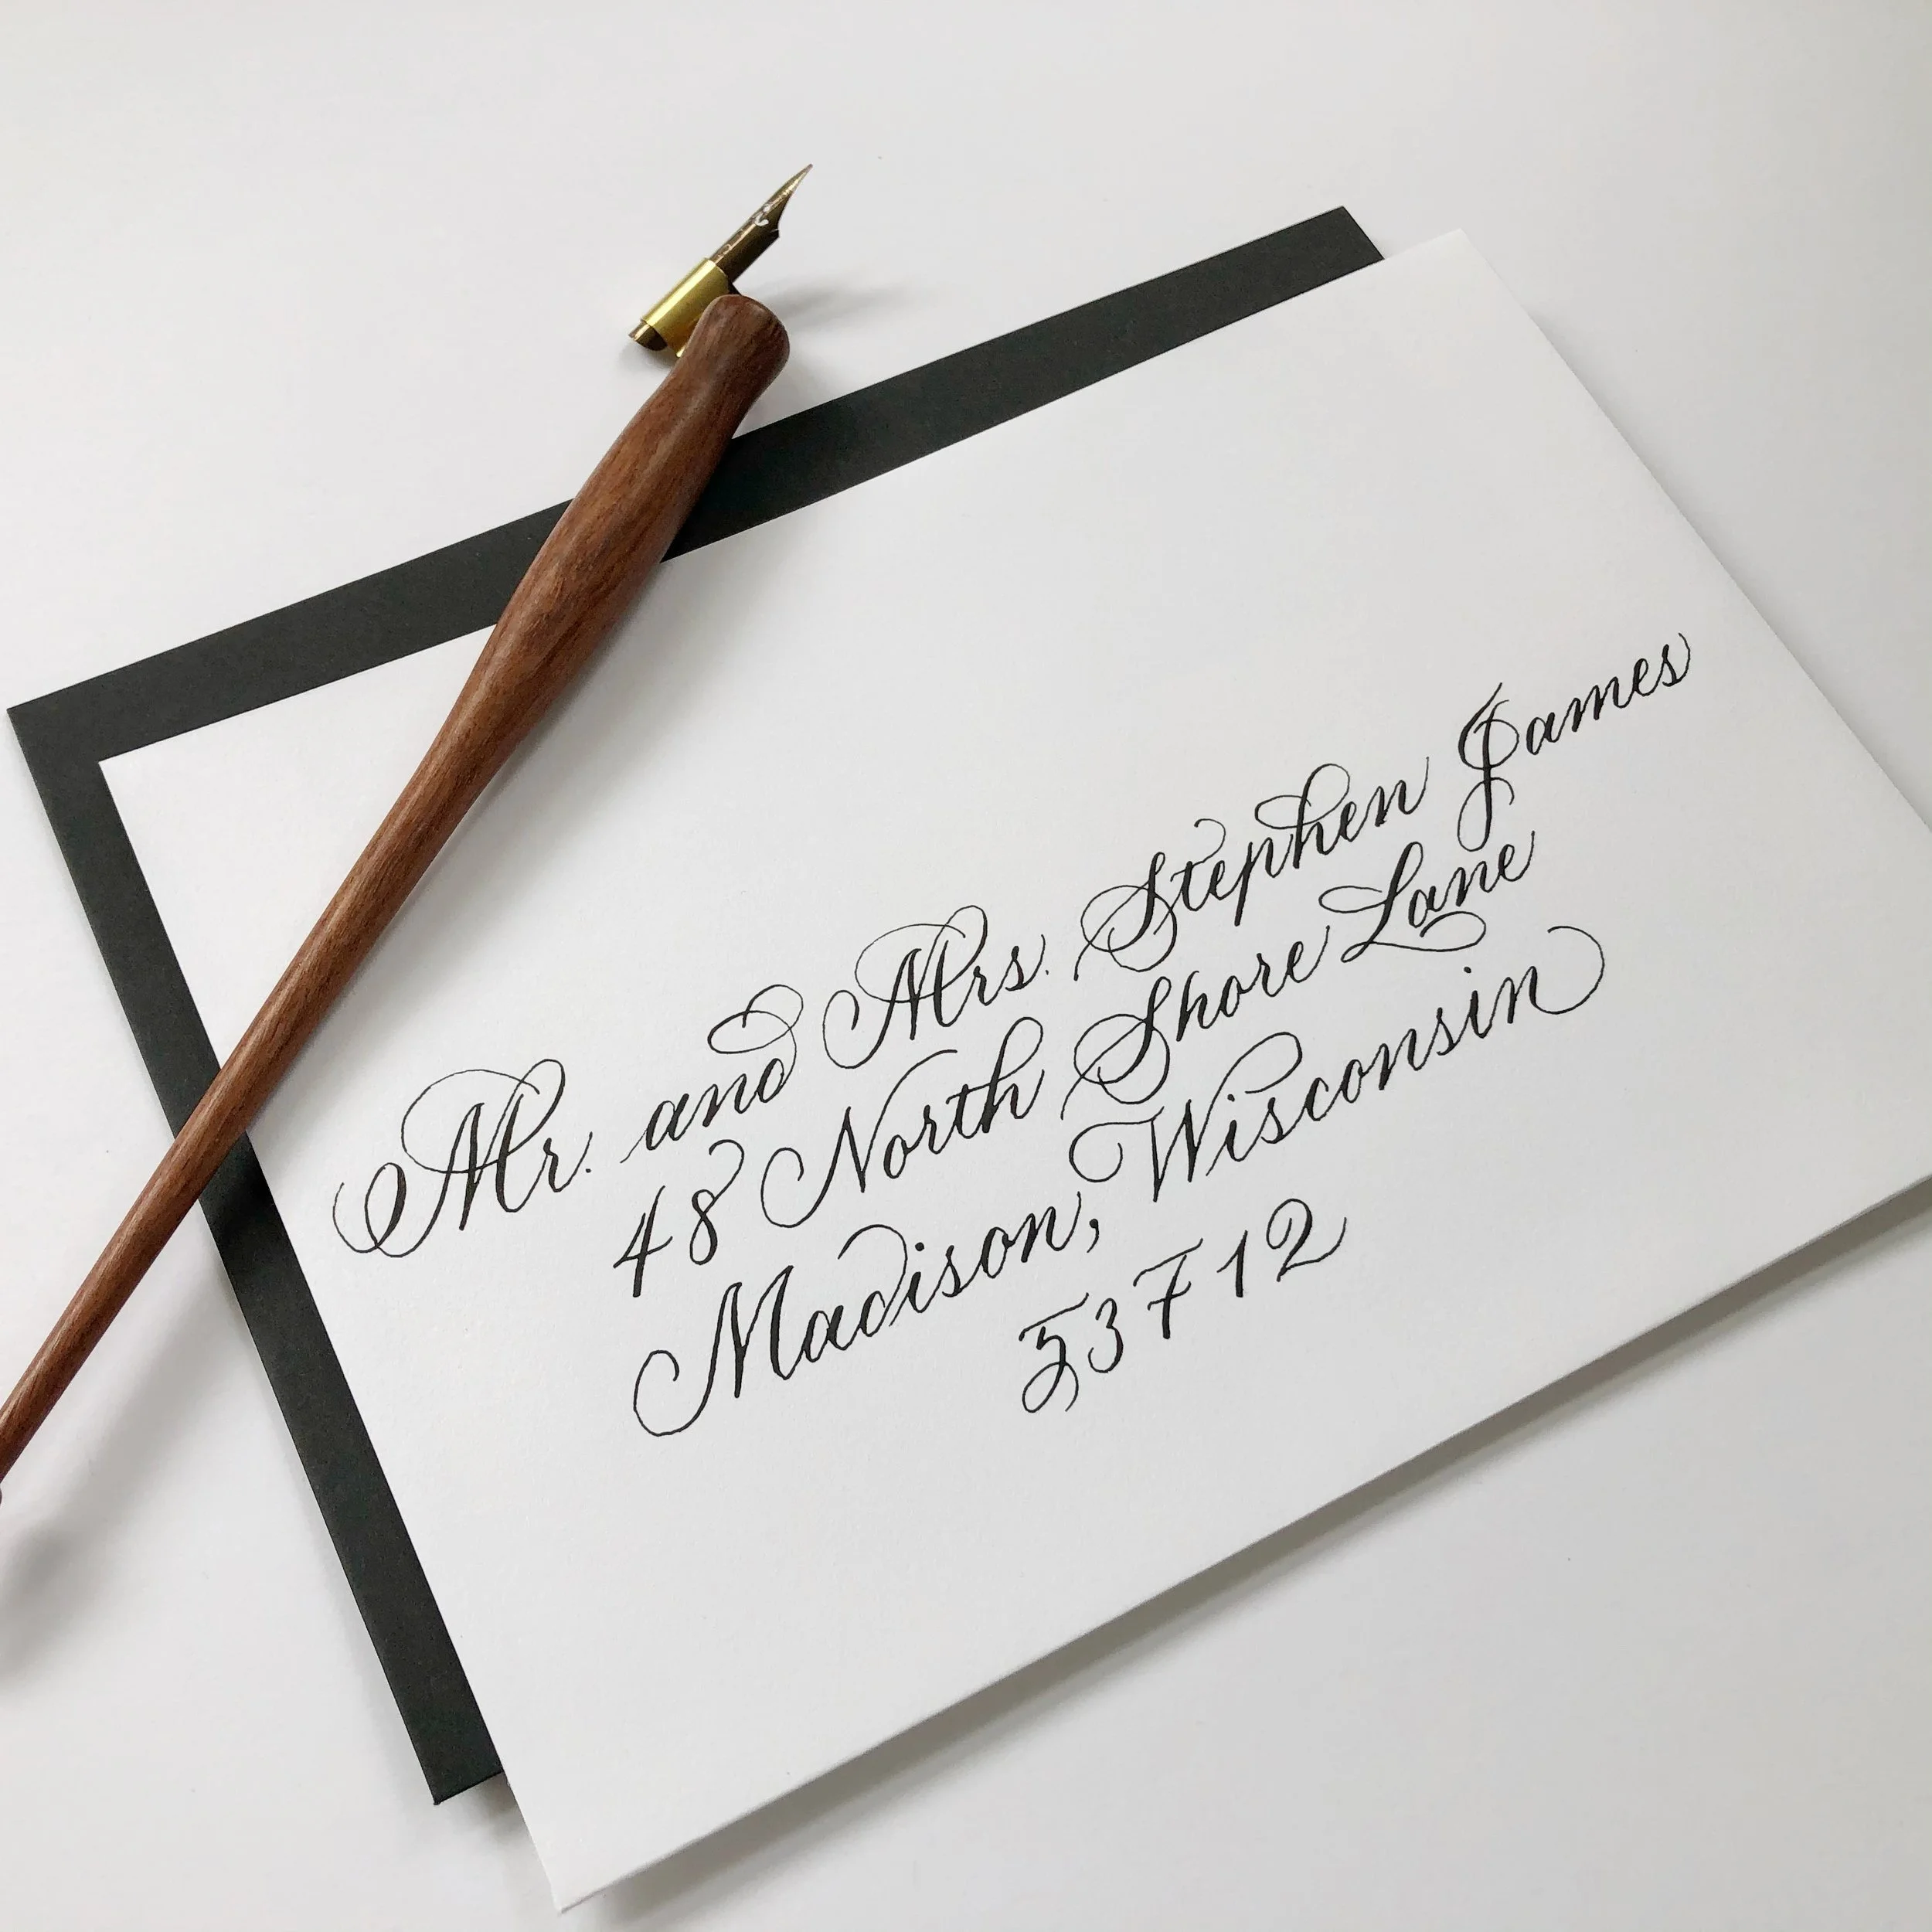 Mr. and Mrs. Stephen James
48 North Shore Lane
Madison, Wisconsin
53712